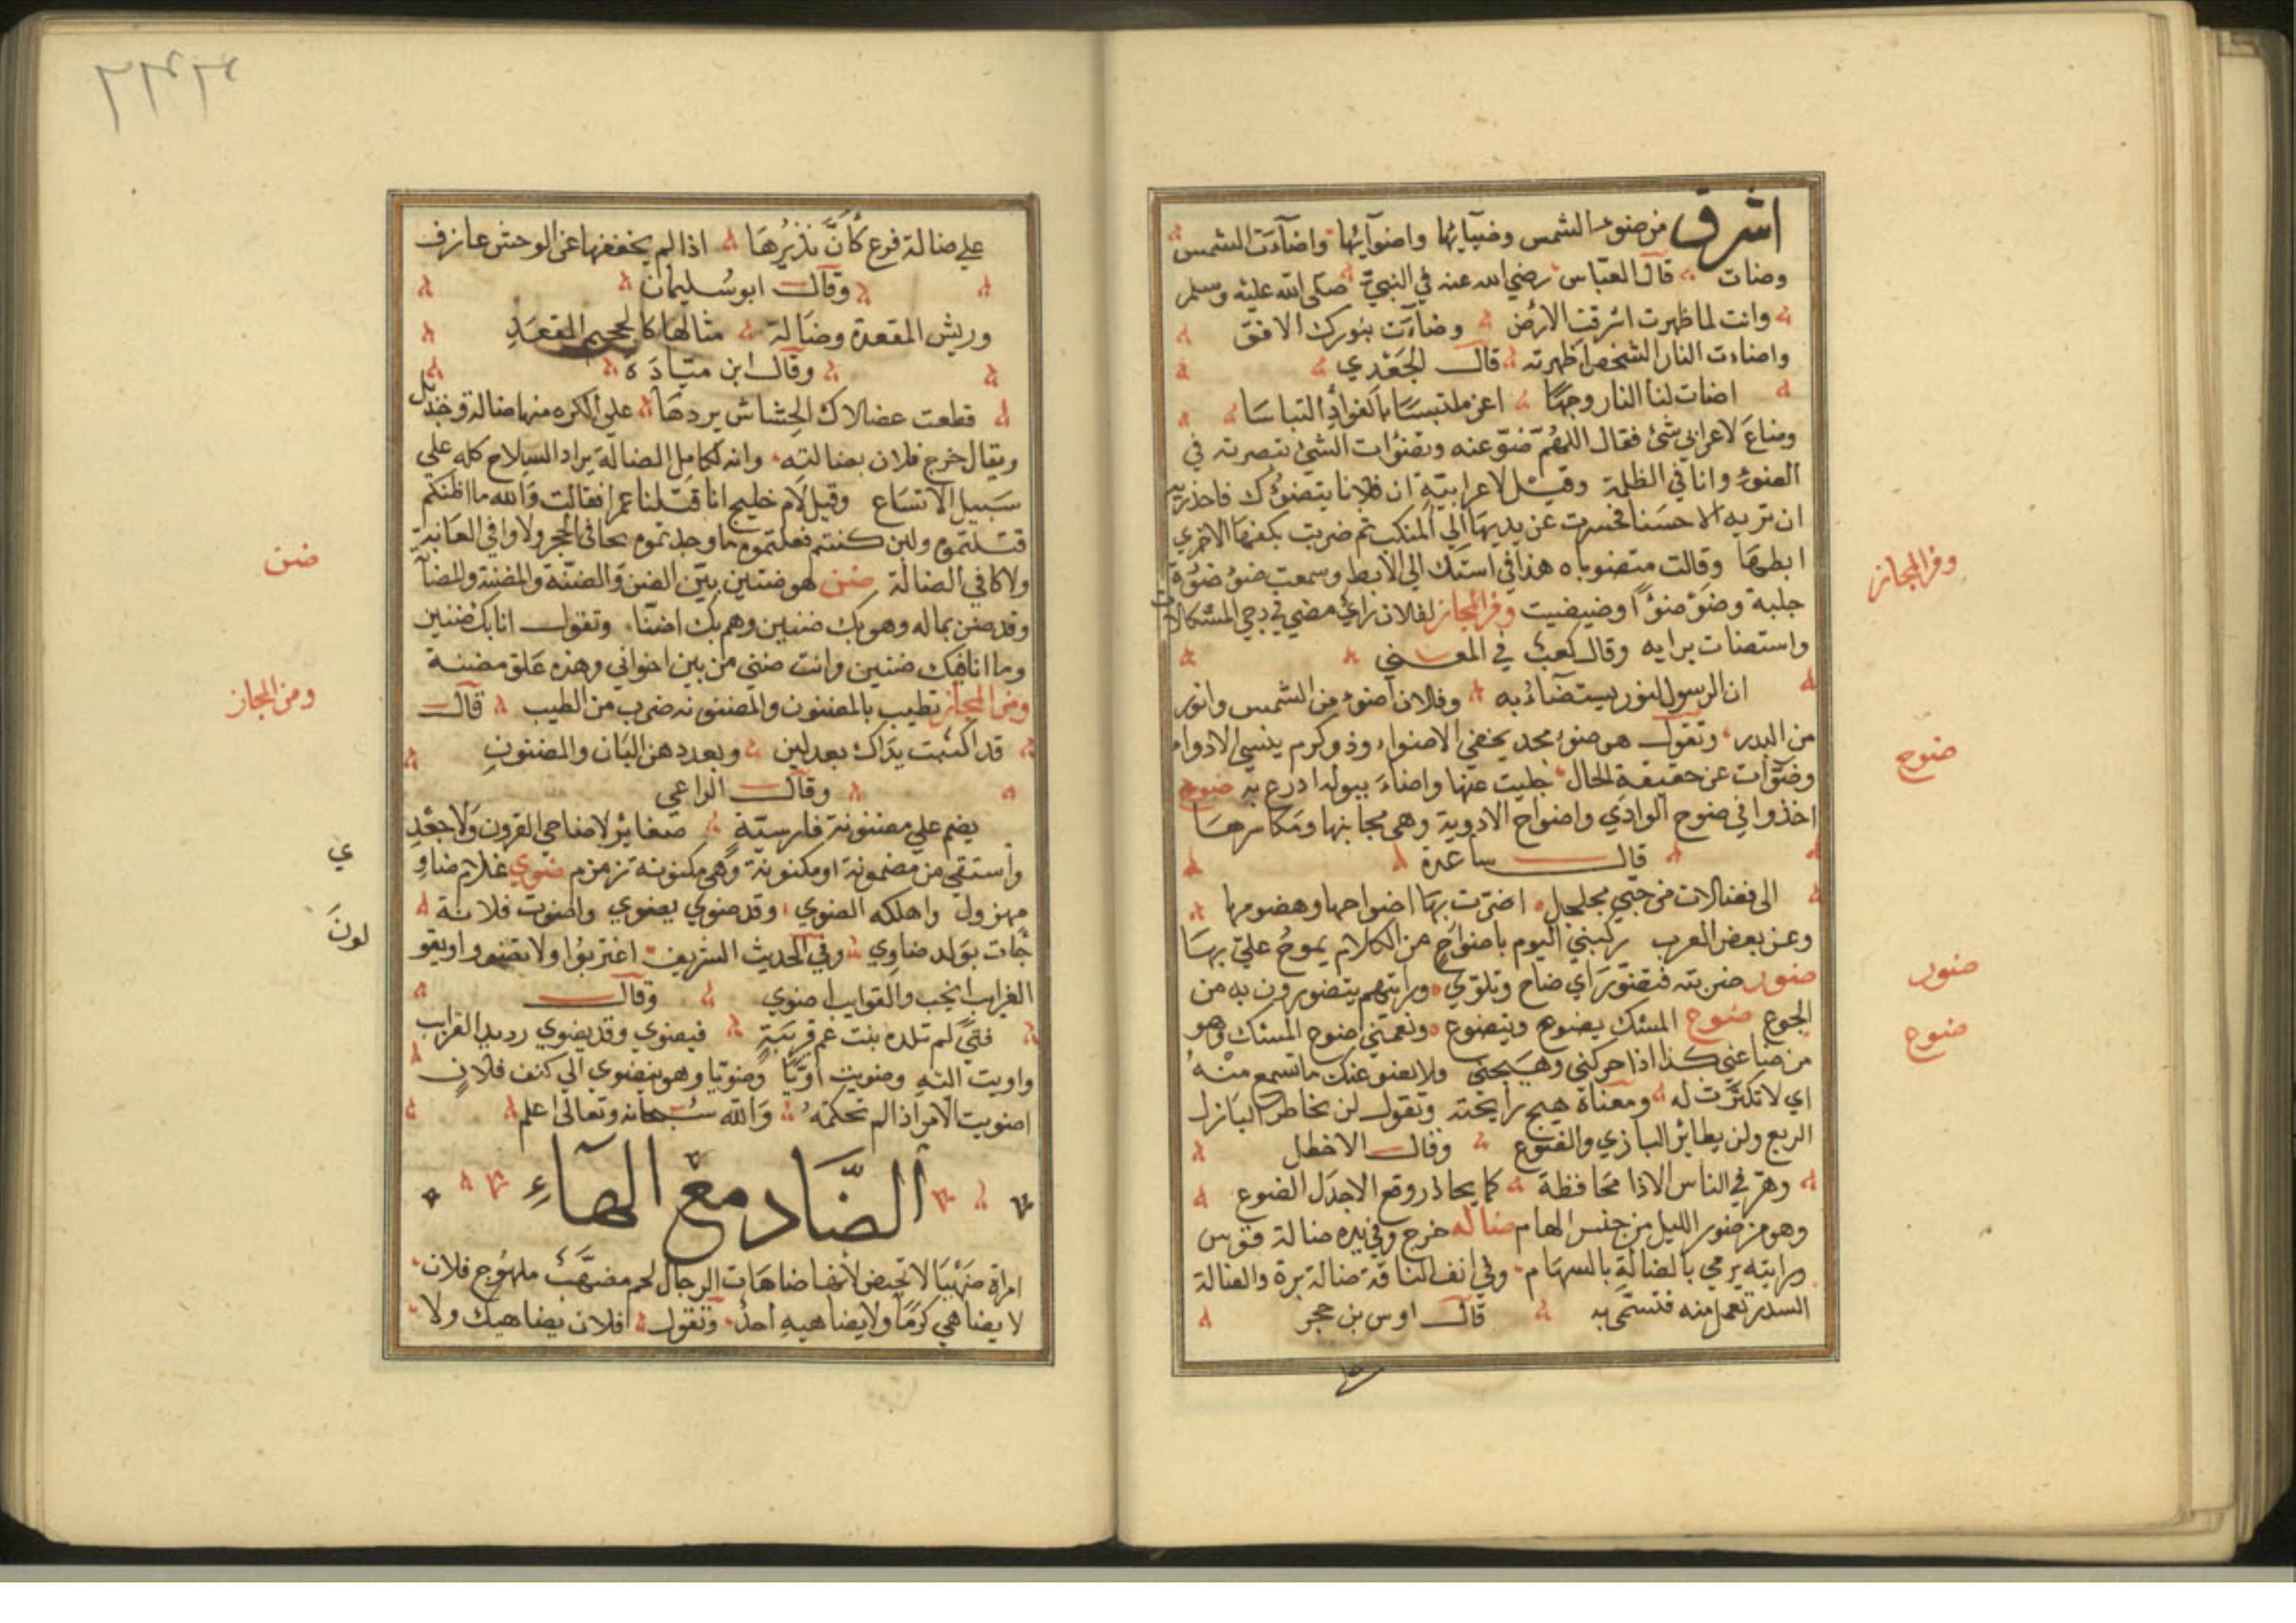 اشرق من ضوء الشمس وضيآيها واضوآيها واضآءت الشمس
وضات قال العباس رضي الله عنه في النبي صلى الله عليه وسلم
وانت لما ظهرت اشرقت الارض وضآءت بنورك الافق
واضاءت النار الشخص اظهرته قال الجعدي
اضات لنا النار وجها اغر ملتبسا بالفواد التباسا
وضاع لاعرابي شئ فقال اللهم ضوّ عنه وتضوأت الشئ تبصرته في
الضوء وانا في الظلمة وقيل لاعرابية ان فلانا يتضوؤك فاحذريه
ان تريه الا حسنا فحسرت عن يديها الي المنكب ثم ضربت بكفها الاخري
ابطها وقالت متضوياه هذا في استك الي الابط وسمعت ضوء ضوة
جلبة وضوضوءا وضيضيت وفر المجاز لفلان راي مضي في دجي المشكلات
واستضات برايه وقال كعب في المعني
ان الرسول لنور يستضاء به وفلان اضوء من الشمس وانور
من البدر وتقول هو ضوء مجد يخفي الاضواء وذو كرم ينسي الادواء
وضوأت عن حقيقة الحال جليت عنها واضاء ببوله ادرع به ضوح
اخذوا في ضوح الوادي واضواح الاودية وهي مجانيها ومكاسرها
قال ساعدة
الى فضالات من حبي مجلجل اضرت بها اضواحها وهضومها
وعن بعض العرب ركبني اليوم باضواج من الكلام يموج علي بها
ضور ضربته فتضور اي ضاح وتلوي ورايتهم يتضورون به من
الجوع ضوع المسك يضوع ويتضوع ونعمتني ضوع المسك وهو
من ضاعني كذا اذا حركني وهيجني ولا يضوعنك ما تسمع منه
اي لا تكترث له ومعناة هيج رايحته وتقول لن يخاطر البازل
الربع ولن يطاير البازي والضوع وقال الاخطل
وهر في الناس الا ذا محافظة كما يحاذر وقع الاجدل الضوع
وهو من ضور الليل من جنس الهام ضاله خرج وفي يده ضالة قوس
ورايته يرمي بالضالة بالسهام وفي انف الناقة ضالة برة والضالة
السدر تعمل منه فتسمي به قال اوس بن حجر
وفر المجاز
ضوح
ضور
ضوع
علي ضالة فرع كأن نذيرها اذا لم يخفضها عن الوحش عازف
وقال ابو سليمان
وريش المقعدة وضالة مثالها كالجحيم المقعد
وقال ابن ميادة
قطعت عضالاك الحشاش يردها علي الكره منها ضالة وجديل
ويقال خرج فلان بضالته وانه لكامل الضالة يراد السلاح كله علي
سبيل الاتساع وقيل لام خليج انا قتلنا عمرا فقالت والله ما اظنكم
قتلتموه ولئن كنتم فعلتموه ما وجدتموه بحافي الحجر ولا وافي العانة
ولا كافي الضالة ضنن هو ضنين بيّن الضن والضنّة والمضنة والمضنآ
وقد ضن بماله وهو بك ضنين وهم بك اضنّا وتقول انا بك ضنين
وما انا فيك ضنين وانت ضني من بين اخواني وهذه علق مضنة
ومن المجاز تطيب بالمضنون والمضنونه ضرب من الطيب قال
قد اكنبت يداك بعد لين وبعد دهن البان والمضنون
وقال الراعي
يضم علي مضنونة فارسية ضفاير لا ضاحي القرون ولا جعد
واستقي من مضمونة او مكنونة وهي مكنونه زمزم ضوي غلام ضاو
مهزول واهلكه الضوي وقد ضوي يضوي واضوت فلانة
جات بولد ضاوي وفي الحديث الشريف اغتربوا ولا تضووا ويقو لون
الغرايب انجب والقوايب اضوي وقال
فتي لم تلده بنت عم قريبة فيضوي وقد يضوي رديد القرايب
واويت اليه وضويت اويّا وضويّا وهو ينضوي الي كنف فلان
اضويت الامر اذا لم تحكمه والله سبحانه وتعالى اعلم
الضاد مع الهآء
امراة ضهيا لا تحيض لانها ضاهات الرجال لحم مضهب ملهوج فلان
لا يضاهي كرما ولا يضاهيه احد وتقول افلان يضاهيك ولا
ضنن
ومن المجاز
ي
لون